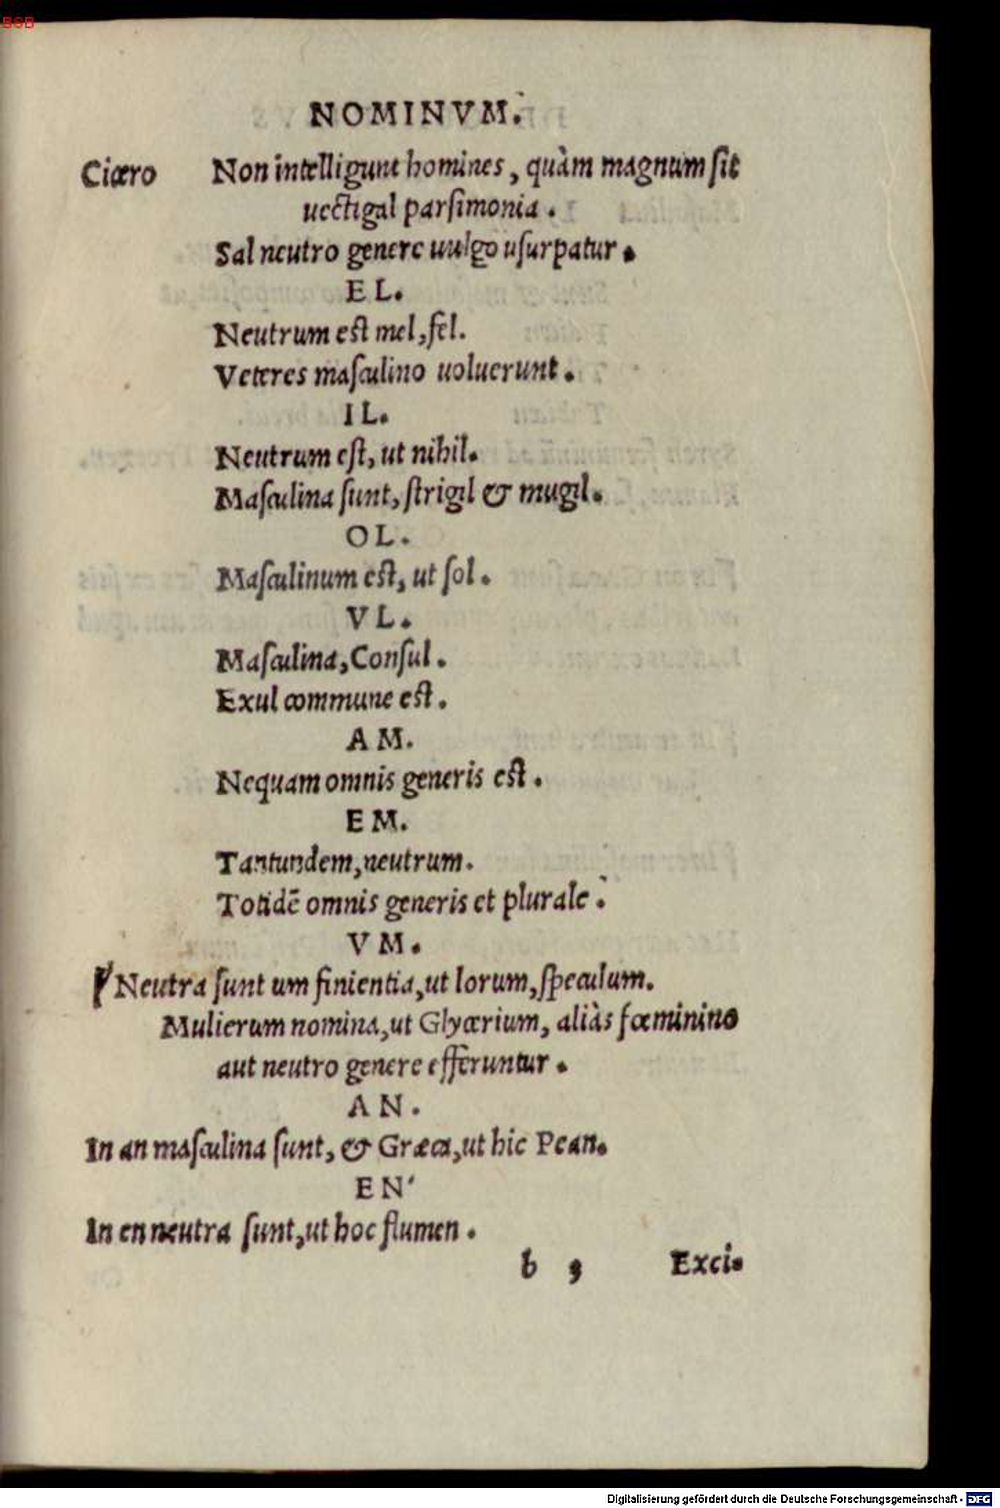 BSB
NOMINVM.
Cicero Non intelligunt homines, quàm magnum ſit
uectigal parſimonia.
Sal neutro genere uulgo uſurpatur.
EL.
Neutrum est mel, fel.
Veteres maſculino uoluerunt.
IL.
Neutrum eſt, ut nihil.
Maſculina ſunt, ſtrigil & mugil.
OL.
Maſculinum eſt, ut ſol.
VL.
Maſculina, Conſul.
Exul commune eſt.
AM.
Nequam omnis generis eſt.
EM.
Tantundem, neutrum.
Totidē omnis generis et plurale.
VM.
Neutra ſunt um finientia, ut lorum, ſpeculum.
Mulierum nomina, ut Glycerium, aliàs fœminino
aut neutro genere efferuntur.
AN.
In an maſculina ſunt, & Græca, ut hic Pean.
EN
In en neutra ſunt, ut hoc flumen.
b 3 Exci.
Digitalisierung gefördert durch die Deutsche Forschungsgemeinschaft - DFG